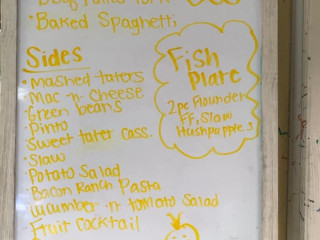 Baked Spaghetti
Sides
Mashed taters
Mac-n-Cheese
Green beans
Pinto
Sweet tater cass.
Slaw
Potato Salad
Bacon Ranch Pasta
cucumber n tomato Salad
Fruit Cocktail
Fish
Plate
2pc Flounder
FF, Slaw
Hushpuppies